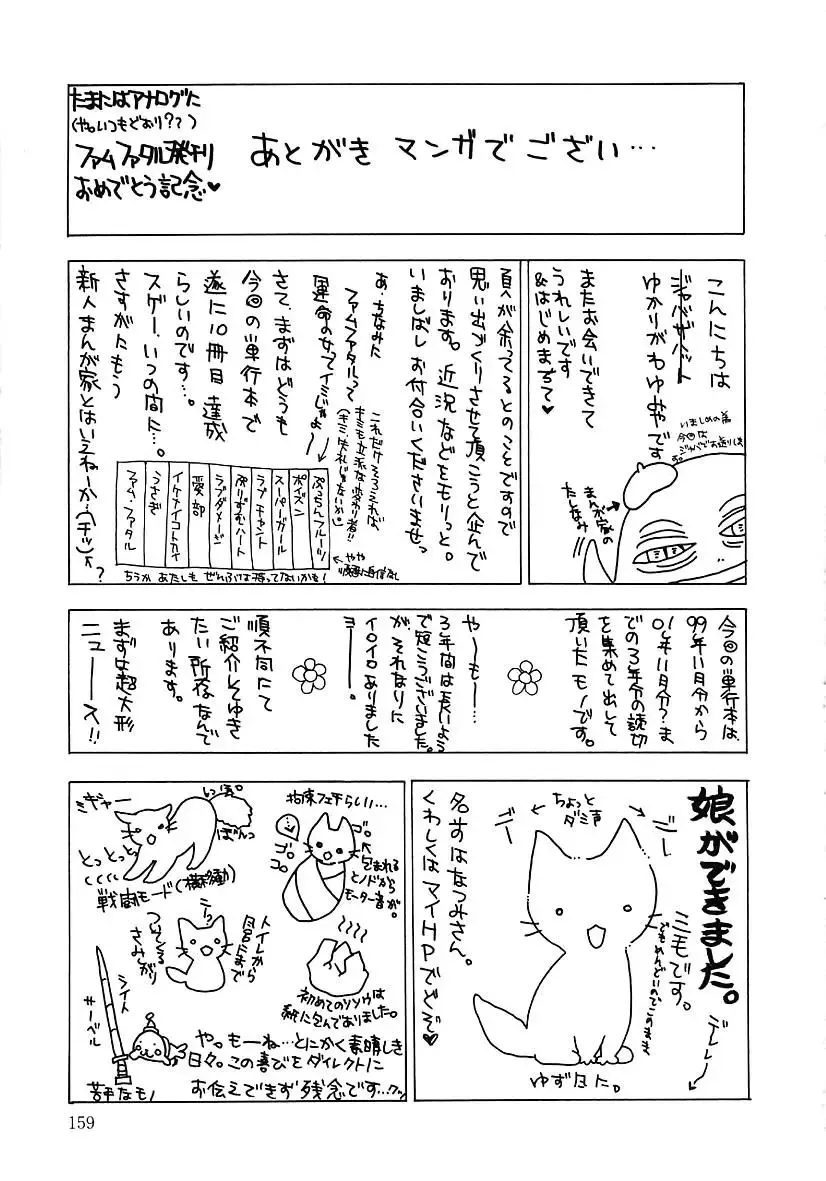 たまにはアナログに
(やっいつもどおり??)
ファムファタル発刊
おめでとう記念♥
あとがき マンガで ござい…
こんにちは
ジャバザハット
ゆかりがわゆみやです
いましめの為
今回は
ジャバでお送りします。
またお会いできて
うれしいです
&はじめまちて♥
まんが家の
たしなみ
頁が余ってるとのことですので
思い出づくりさせて頂こうと企んで
おります。近況などをモリっと。
いましばし お付合いくださいませっ
あ、ちなみに
ファムファタルって
運命の女ってイミじゃよ〜
これだけそろえれば
キミも立派な変わり者!!
(キミは失礼じゃないか)
さて、まずはどうも
今回の単行本で
遂に10冊目達成
らしいのです…。
スゲー、いつの間に…。
さすがにもう
新人まんが家とはいえねーか…(チッ)
ぷっちんフルーツ
ポイズン
スーパーガール
ラブチャント
ぷりずむハート
ラブダメージ
愛部
イケナイコトカイ
うさぎ
ファム・ファタル
やや
順番に自信なし
ちうか あたしも ぜんぶは持ってないかも!
今回の単行本は、
99年11月分から
01年11月分?ま
での3年分の読切
を集めて出して
頂いたモノです。
や〜も〜…
3年間は長いよう
で短こうございました。
が、それなりに
イロイロありました
ヨー。
順不同にて
ご紹介してゆき
たい所存なんで
あります。
まずは超大形
ニュース!!
娘ができました。
三毛です。
でもめんどいのでこのまま
デレレ〜
ちょっと
ダミ声
ビー
ビー
名まえはなつみさん。
くわしくはマイHPでどぞ♥
ゆず似に。
拘束フェチらしい…
ゴロ
ゴロ
ゴロ
包まれる
とノドから
モーター音が。
ミギャー
しっぽ。
ぼんっ
とっとっとっ
戦闘モード(横移動)
トイレから
風呂にまで
ついてくる
さみしがり
初めてのソソウは
紙に包んでありました。
ライト
サーベル
や。も〜ね…とにかく素晴しき
日々。この喜びをダイレクトに
お伝えできず 残念です…クッ
苦手なモノ
159